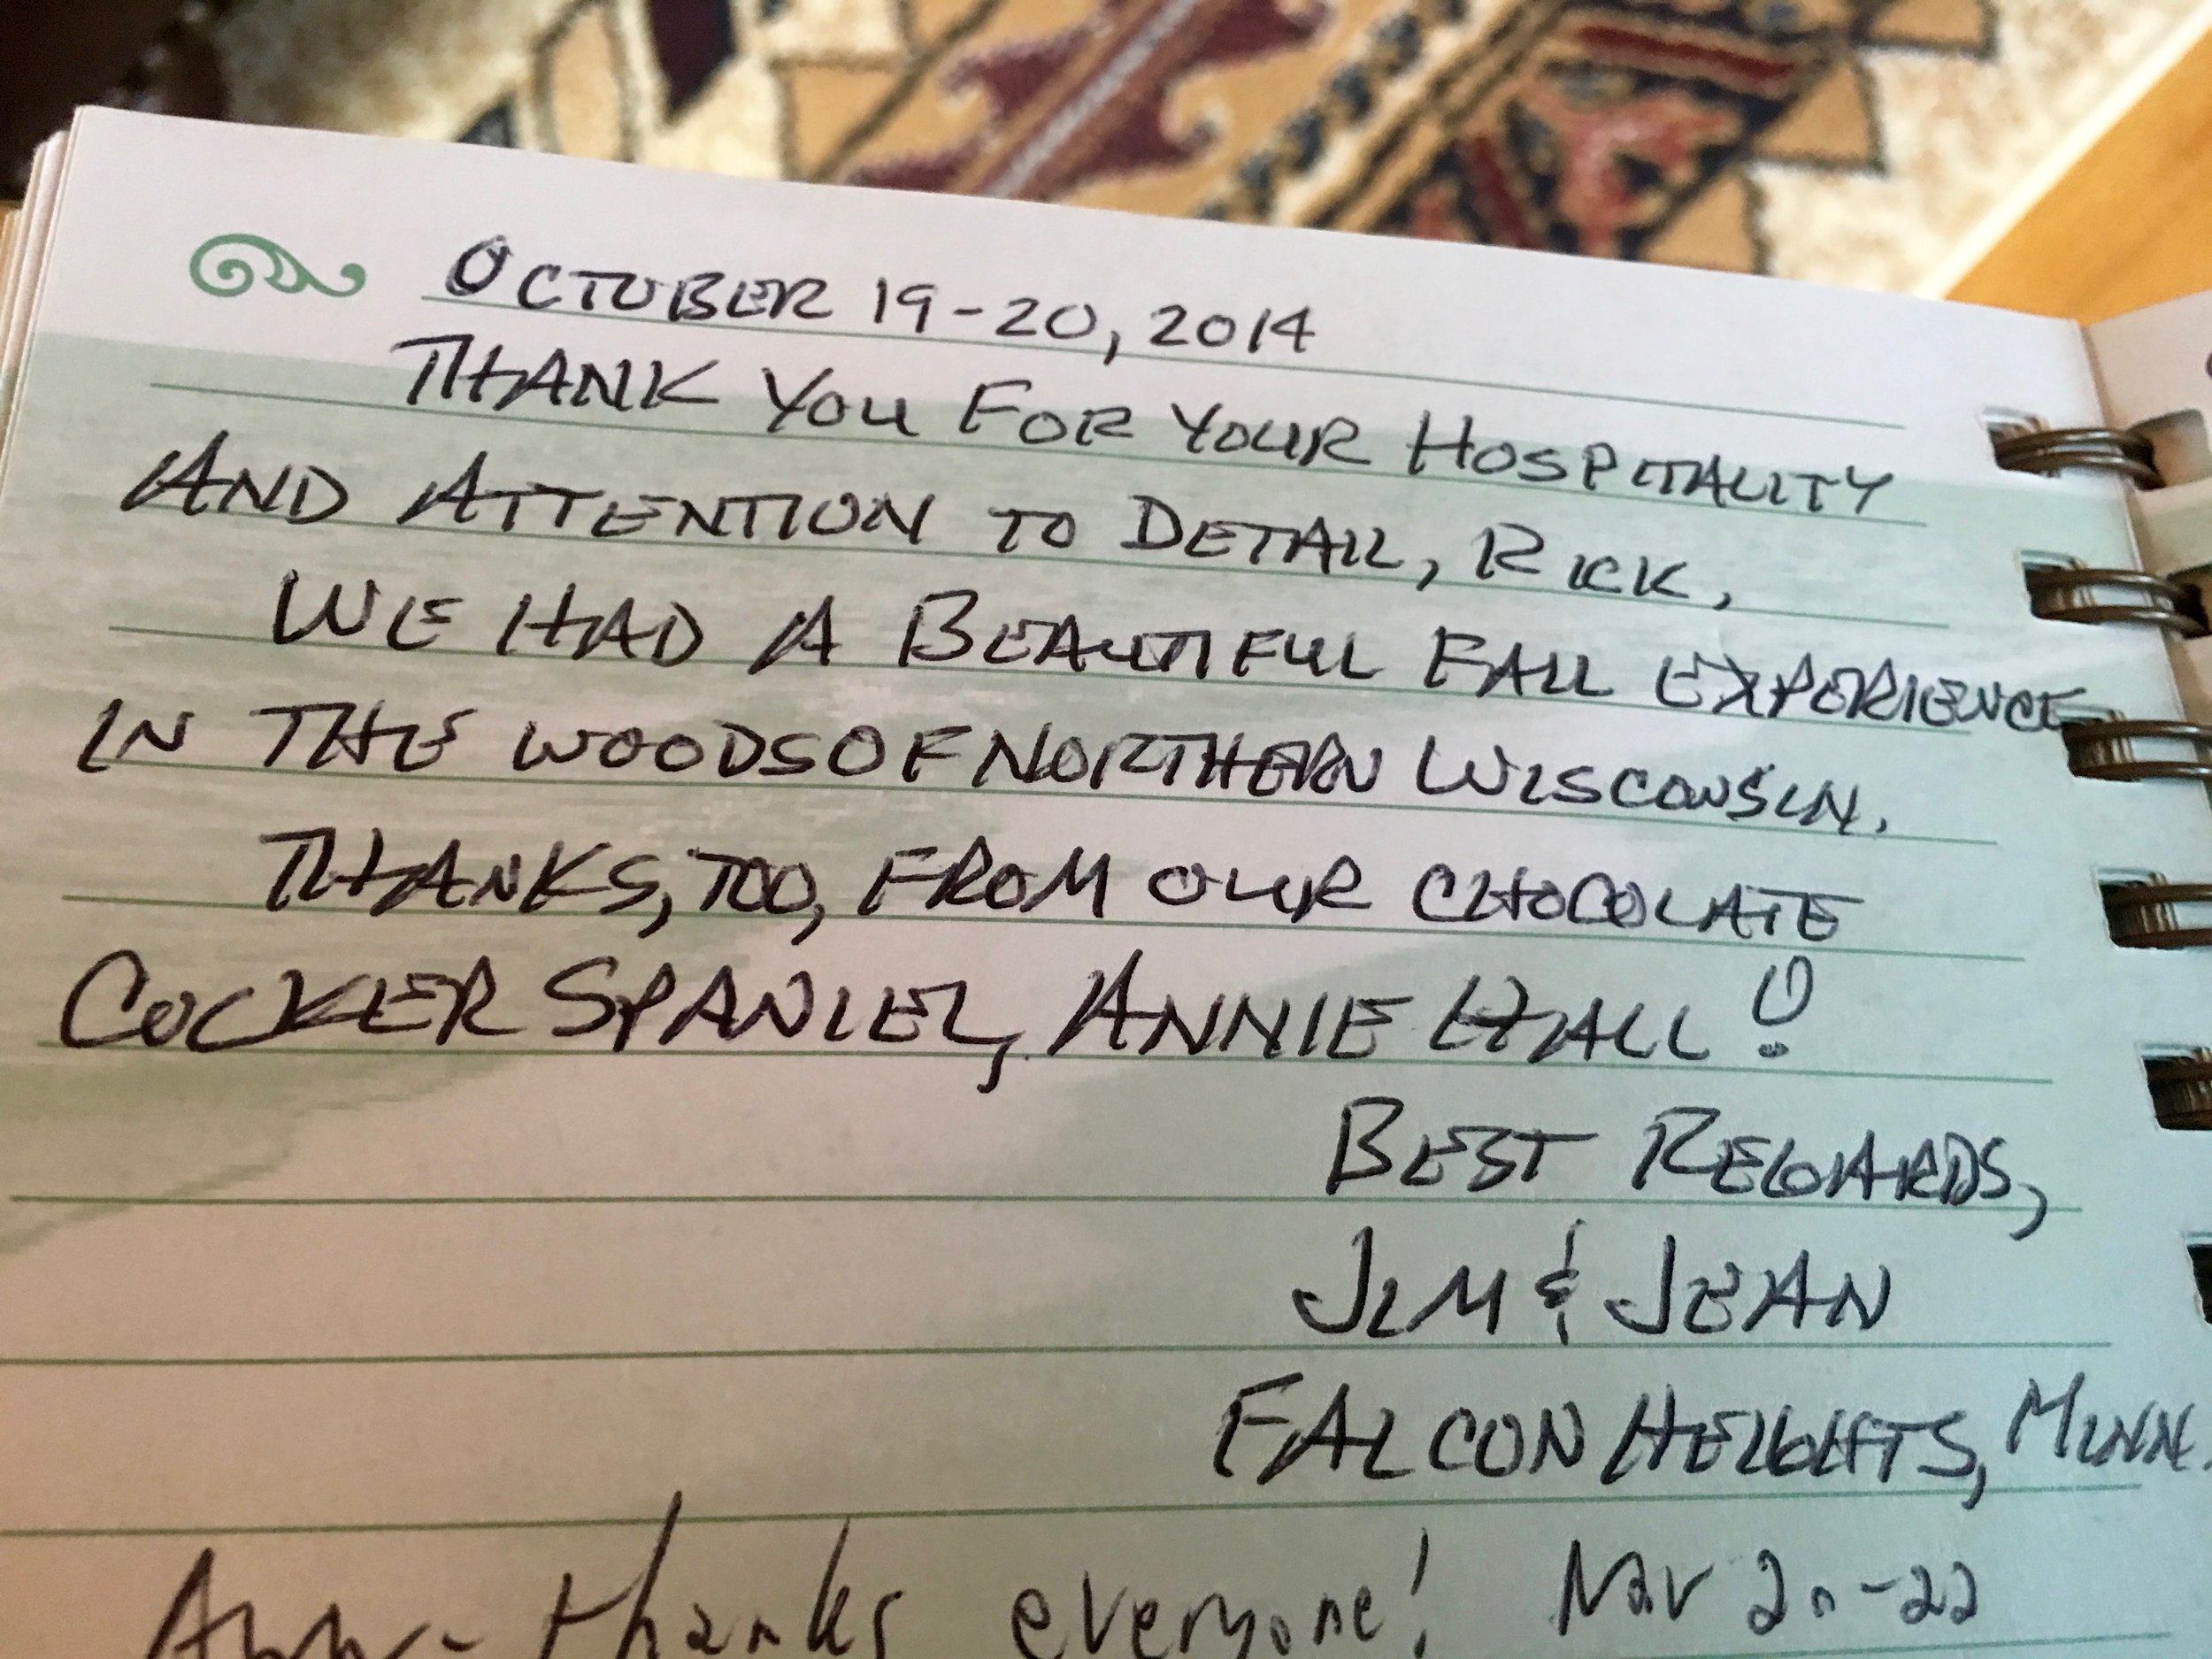 OCTOBER 19-20, 2014
THANK YOU FOR YOUR HOSPITALITY
AND ATTENTION TO DETAIL, RICK,
WE HAD A BEAUTIFUL FALL EXPERIENCE
IN THE WOODS OF NORTHERN WISCONSIN.
THANKS, TOO, FROM OUR CHOCOLATE
COCKER SPANIEL, ANNIE HALL!
BEST REGARDS,
JIM & JEAN
FALCON HEIGHTS, MINN.
- thanks everyone! Nov 20-22